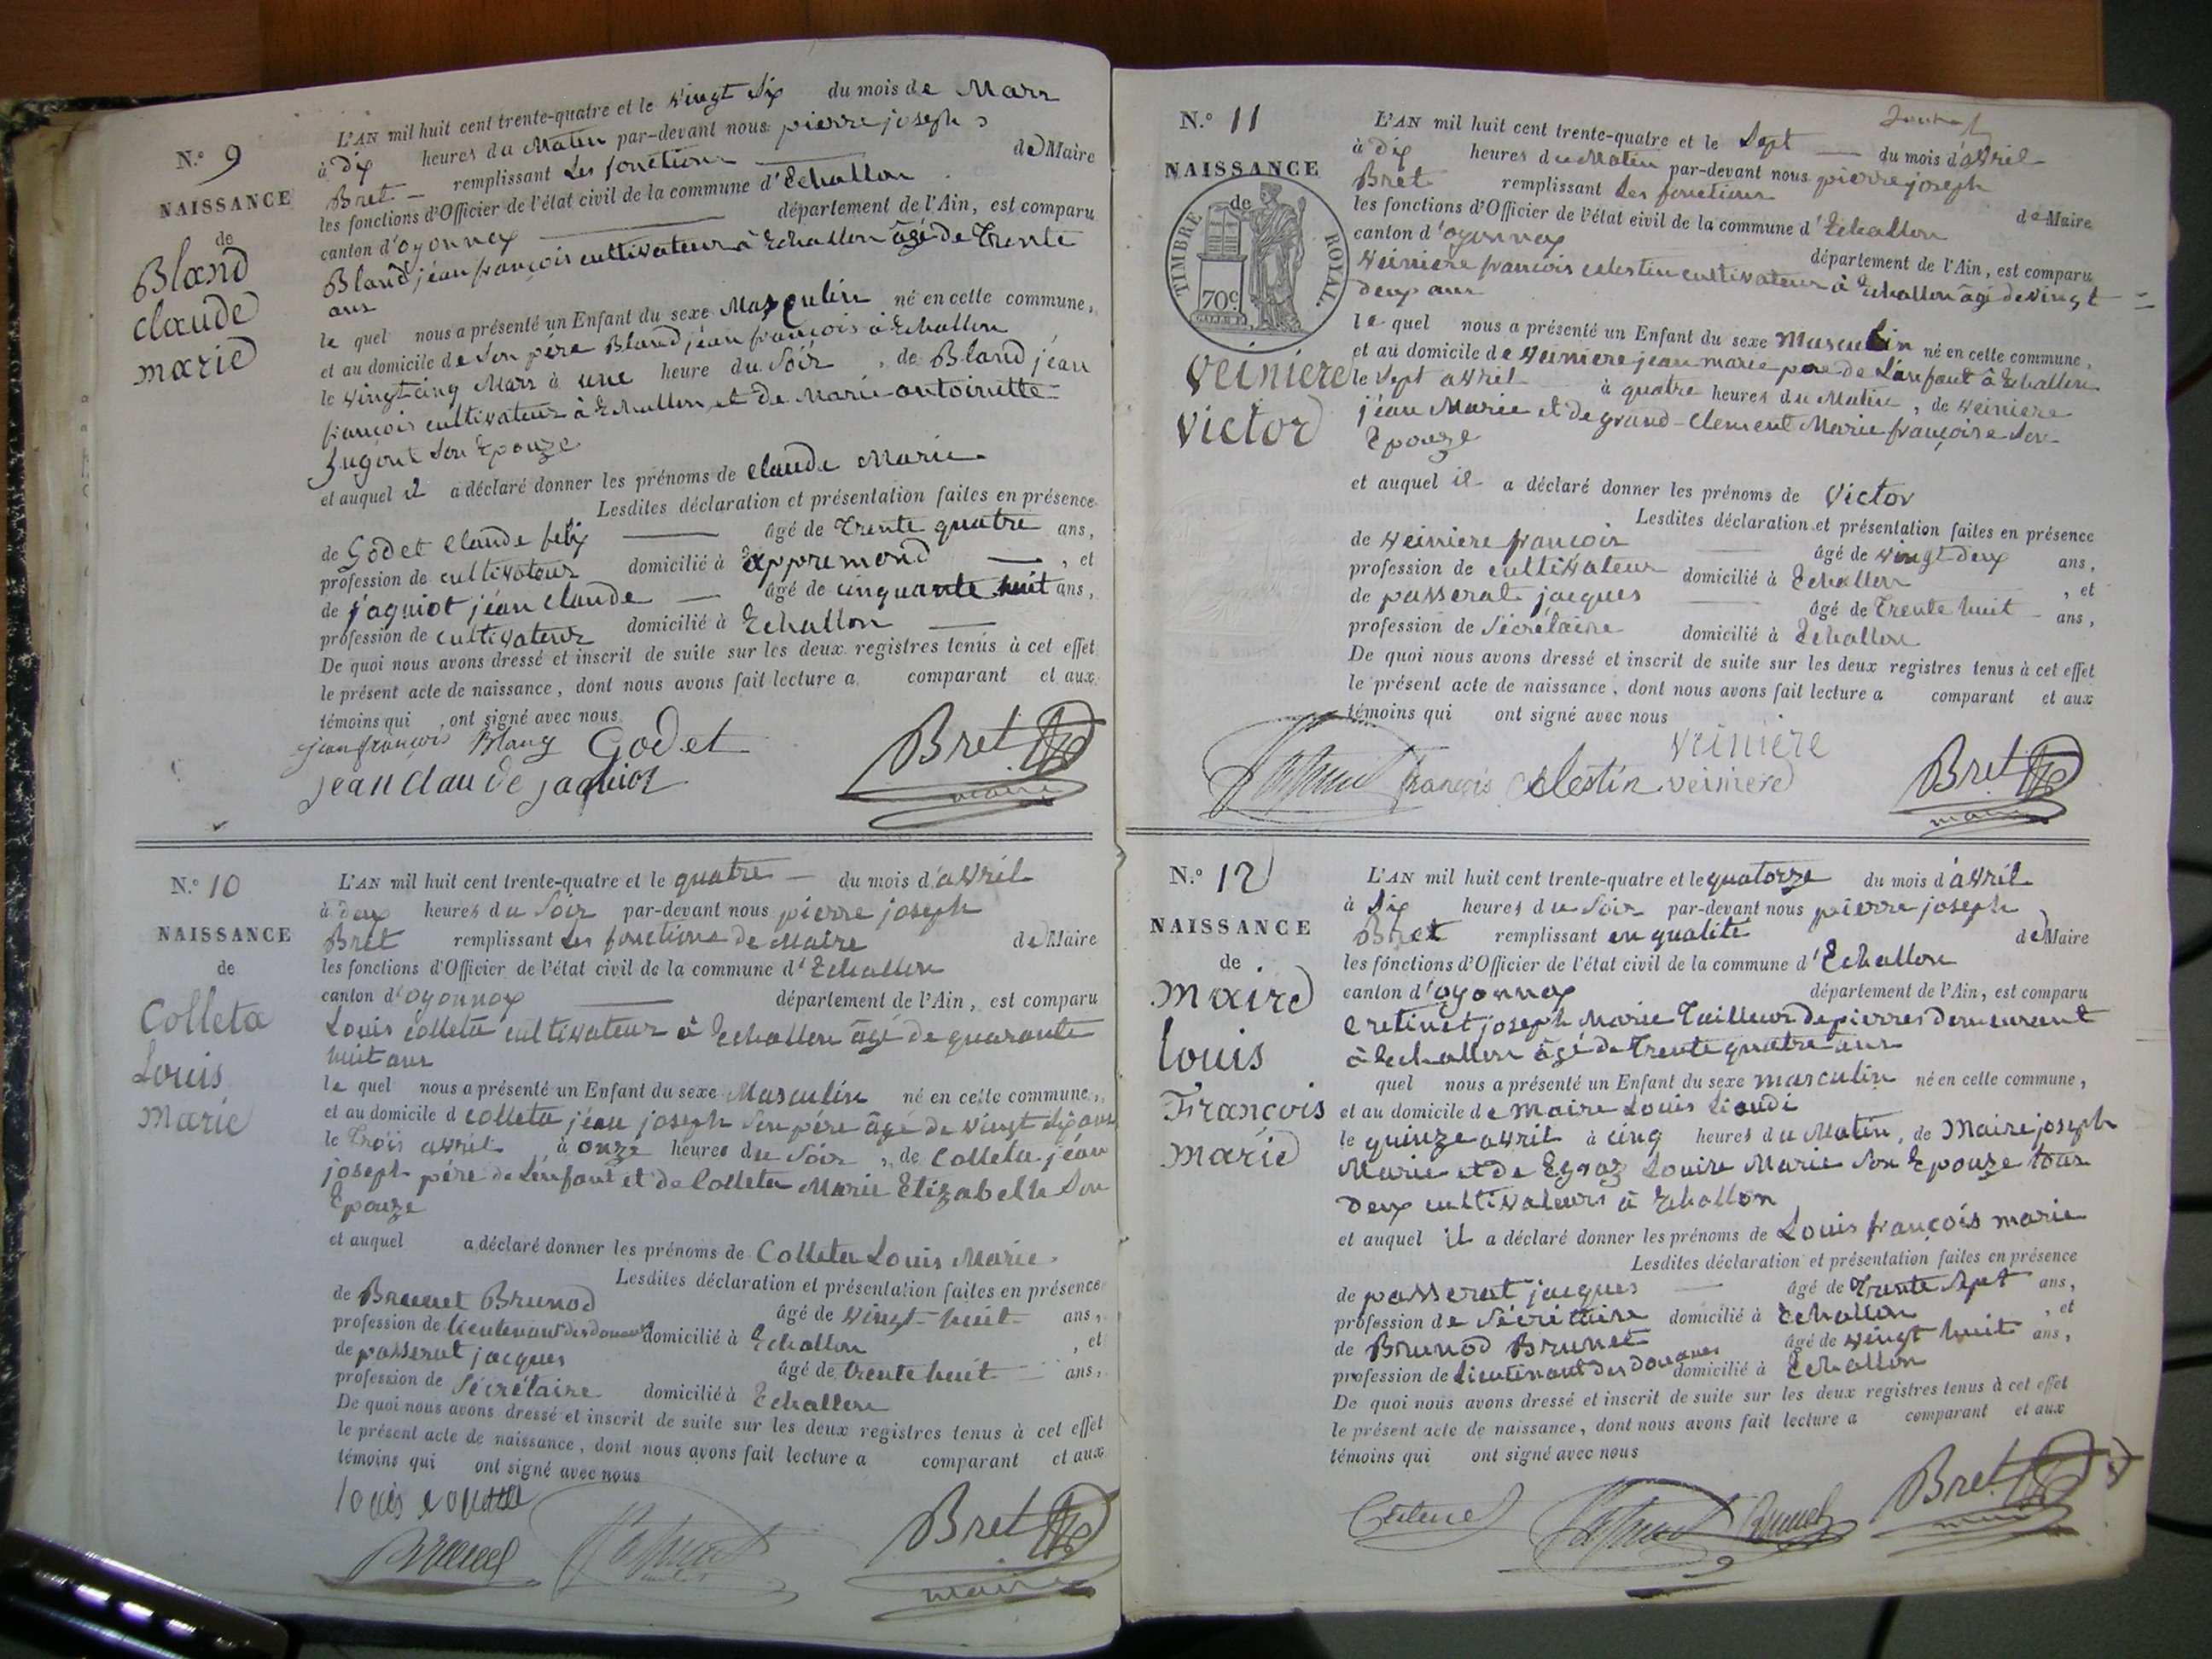 N.° 9
NAISSANCE
de
Bland
claude
marie
L'AN mil huit cent trente-quatre et le vingt Six du mois de Mars
à dix heures du Matin par-devant nous pierre joseph
Bret remplissant Les fonctions de Maire
les fonctions d'Officier de l'état civil de la commune d'Echallon
canton d'oyonnax département de l'Ain, est comparu
Bland jéan françois cultivateur à Echallon âgé de Trente
ans
le quel nous a présenté un Enfant du sexe Masculin né en celle commune,
et au domicile de Son père Bland jéan françois à Echallon
le vingt cinq Mars à une heure du Soir, de Bland jéan
françois cultivateur à Echallon et de Marie antoinette
Son Epouze
et auquel il a déclaré donner les prénoms de claude Marie
Lesdites déclaration et présentation faites en présence
de Godet Claude felix âgé de Trente quatre ans,
profession de cultivateur domicilié à appremond, et
de jaquiot jéan claude âgé de cinquante huit ans,
profession de cultivateur domicilié à Echallon
De quoi nous avons dressé et inscrit de suite sur les deux registres tenus à cet effet
le présent acte de naissance, dont nous avons fait lecture a comparant et aux
témoins qui ont signé avec nous
jean françois Blanq Godet Bret
jean claude jaquiot maire
N.° 10
NAISSANCE
de
Colleta
Louis
Marie
L'AN mil huit cent trente-quatre et le quatre du mois d'avril
à deux heures du Soir par-devant nous pierre joseph
Bret remplissant Les fonctions de Maire de Maire
les fonctions d'Officier de l'état civil de la commune d'Echallon
canton d'oyonnax département de l'Ain, est comparu
Louis colleta cultivateur à Echallon âgé de quarante
huit ans
le quel nous a présenté un Enfant du sexe Masculin né en celle commune,
et au domicile d colleta jéan joseph Son père âgé de vingt Six ans
le Trois avril à onze heures du Soir, de Colleta jéan
joseph père de Lenfant et de Colleta Marie Elizabelle Son
Epouze
et auquel a déclaré donner les prénoms de Colleta Louis Marie
Lesdites déclaration et présentation faites en présence
de Brunet Brunod âgé de vingt-huit ans,
profession de lieutenant des douanes domicilié à Echallon, et
de passerat jacques âgé de trente huit ans,
profession de Sécrétaire domicilié à Echallon
De quoi nous avons dressé et inscrit de suite sur les deux registres tenus à cet effet
le présent acte de naissance, dont nous avons fait lecture a comparant et aux
témoins qui ont signé avec nous
louis
Brunet Bret
maire
N.° 11
NAISSANCE
de
TIMBRE ROYAL.
70c
veiniere
victor
L'AN mil huit cent trente-quatre et le Sept du mois d'avril
à dix heures du Matin par-devant nous pierre joseph
Bret remplissant Les fonctions de Maire
les fonctions d'Officier de l'état civil de la commune d'Echallon
canton d'oyonnax département de l'Ain, est comparu
veiniere francois celestin cultivateur à Echallon âgé de vingt
deux ans
le quel nous a présenté un Enfant du sexe Masculin né en celle commune,
et au domicile de veiniere jean marie père de Lenfant à Echallon
le Sept avril à quatre heures du Matin, de veiniere
jéan Marie et de grand-Clement Marie françoise Son
Epouze
et auquel il a déclaré donner les prénoms de Victor
Lesdites déclaration et présentation faites en présence
de veiniere francois âgé de vingt deux ans,
profession de cultivateur domicilié à Echallon, et
de passerat jacques âgé de Trente huit ans,
profession de Sécrétaire domicilié à Echallon
De quoi nous avons dressé et inscrit de suite sur les deux registres tenus à cet effet
le présent acte de naissance, dont nous avons fait lecture a comparant et aux
témoins qui ont signé avec nous
veiniere
françois celestin veiniere Bret
maire
N.° 12
NAISSANCE
de
Maire
Louis
François
Marie
L'AN mil huit cent trente-quatre et le quatorze du mois d'avril
à Six heures du Soir par-devant nous pierre joseph
Bret remplissant en qualité de Maire
les fonctions d'Officier de l'état civil de la commune d'Echallon
canton d'oyonnax département de l'Ain, est comparu
Cretinet joseph Marie Tailleur de pierres demeurant
à Echallon âgé de Trente quatre ans
quel nous a présenté un Enfant du sexe masculin né en celle commune,
et au domicile de maire Louis
le quinze avril à cinq heures du Matin, de Maire joseph
Marie et de Egraz Louise Marie Son Epouze tous
deux cultivateurs à Echallon
et auquel il a déclaré donner les prénoms de Louis françois marie
Lesdites déclaration et présentation faites en présence
de passerat jacques âgé de Trente Sept ans,
profession de Sécrétaire domicilié à Echallon, et
de Brunod Brunet âgé de vingt huit ans,
profession de Lieutenant des douanes domicilié à Echallon
De quoi nous avons dressé et inscrit de suite sur les deux registres tenus à cet effet
le présent acte de naissance, dont nous avons fait lecture a comparant et aux
témoins qui ont signé avec nous
Brunet Bret